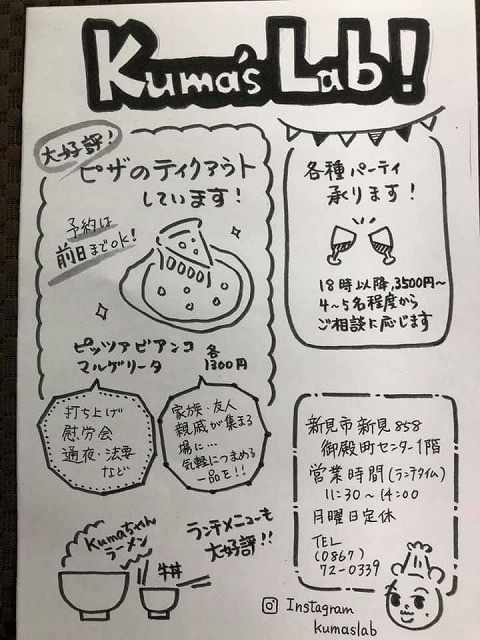 Kuma's Lab!
大好評!
ピザのテイクアウト
しています!
予約は
前日までOK!
ピッツァビアンコ
マルゲリータ
各
1300円
各種パーティ
承ります!
18時以降,3500円~
4~5名程度から
ご相談に応じます
打ち上げ
慰労会
通夜・法要
など
家族・友人
親戚が集まる
場に…
気軽につまめる
一品を!!
新見市新見858
御殿町センター1階
営業時間(ランチタイム)
11:30~14:00
月曜日定休
TEL
(0867)
72-0339
Kumaちゃん
ラーメン
牛丼
ランチメニューも
大好評!!
Instagram
kumaslab